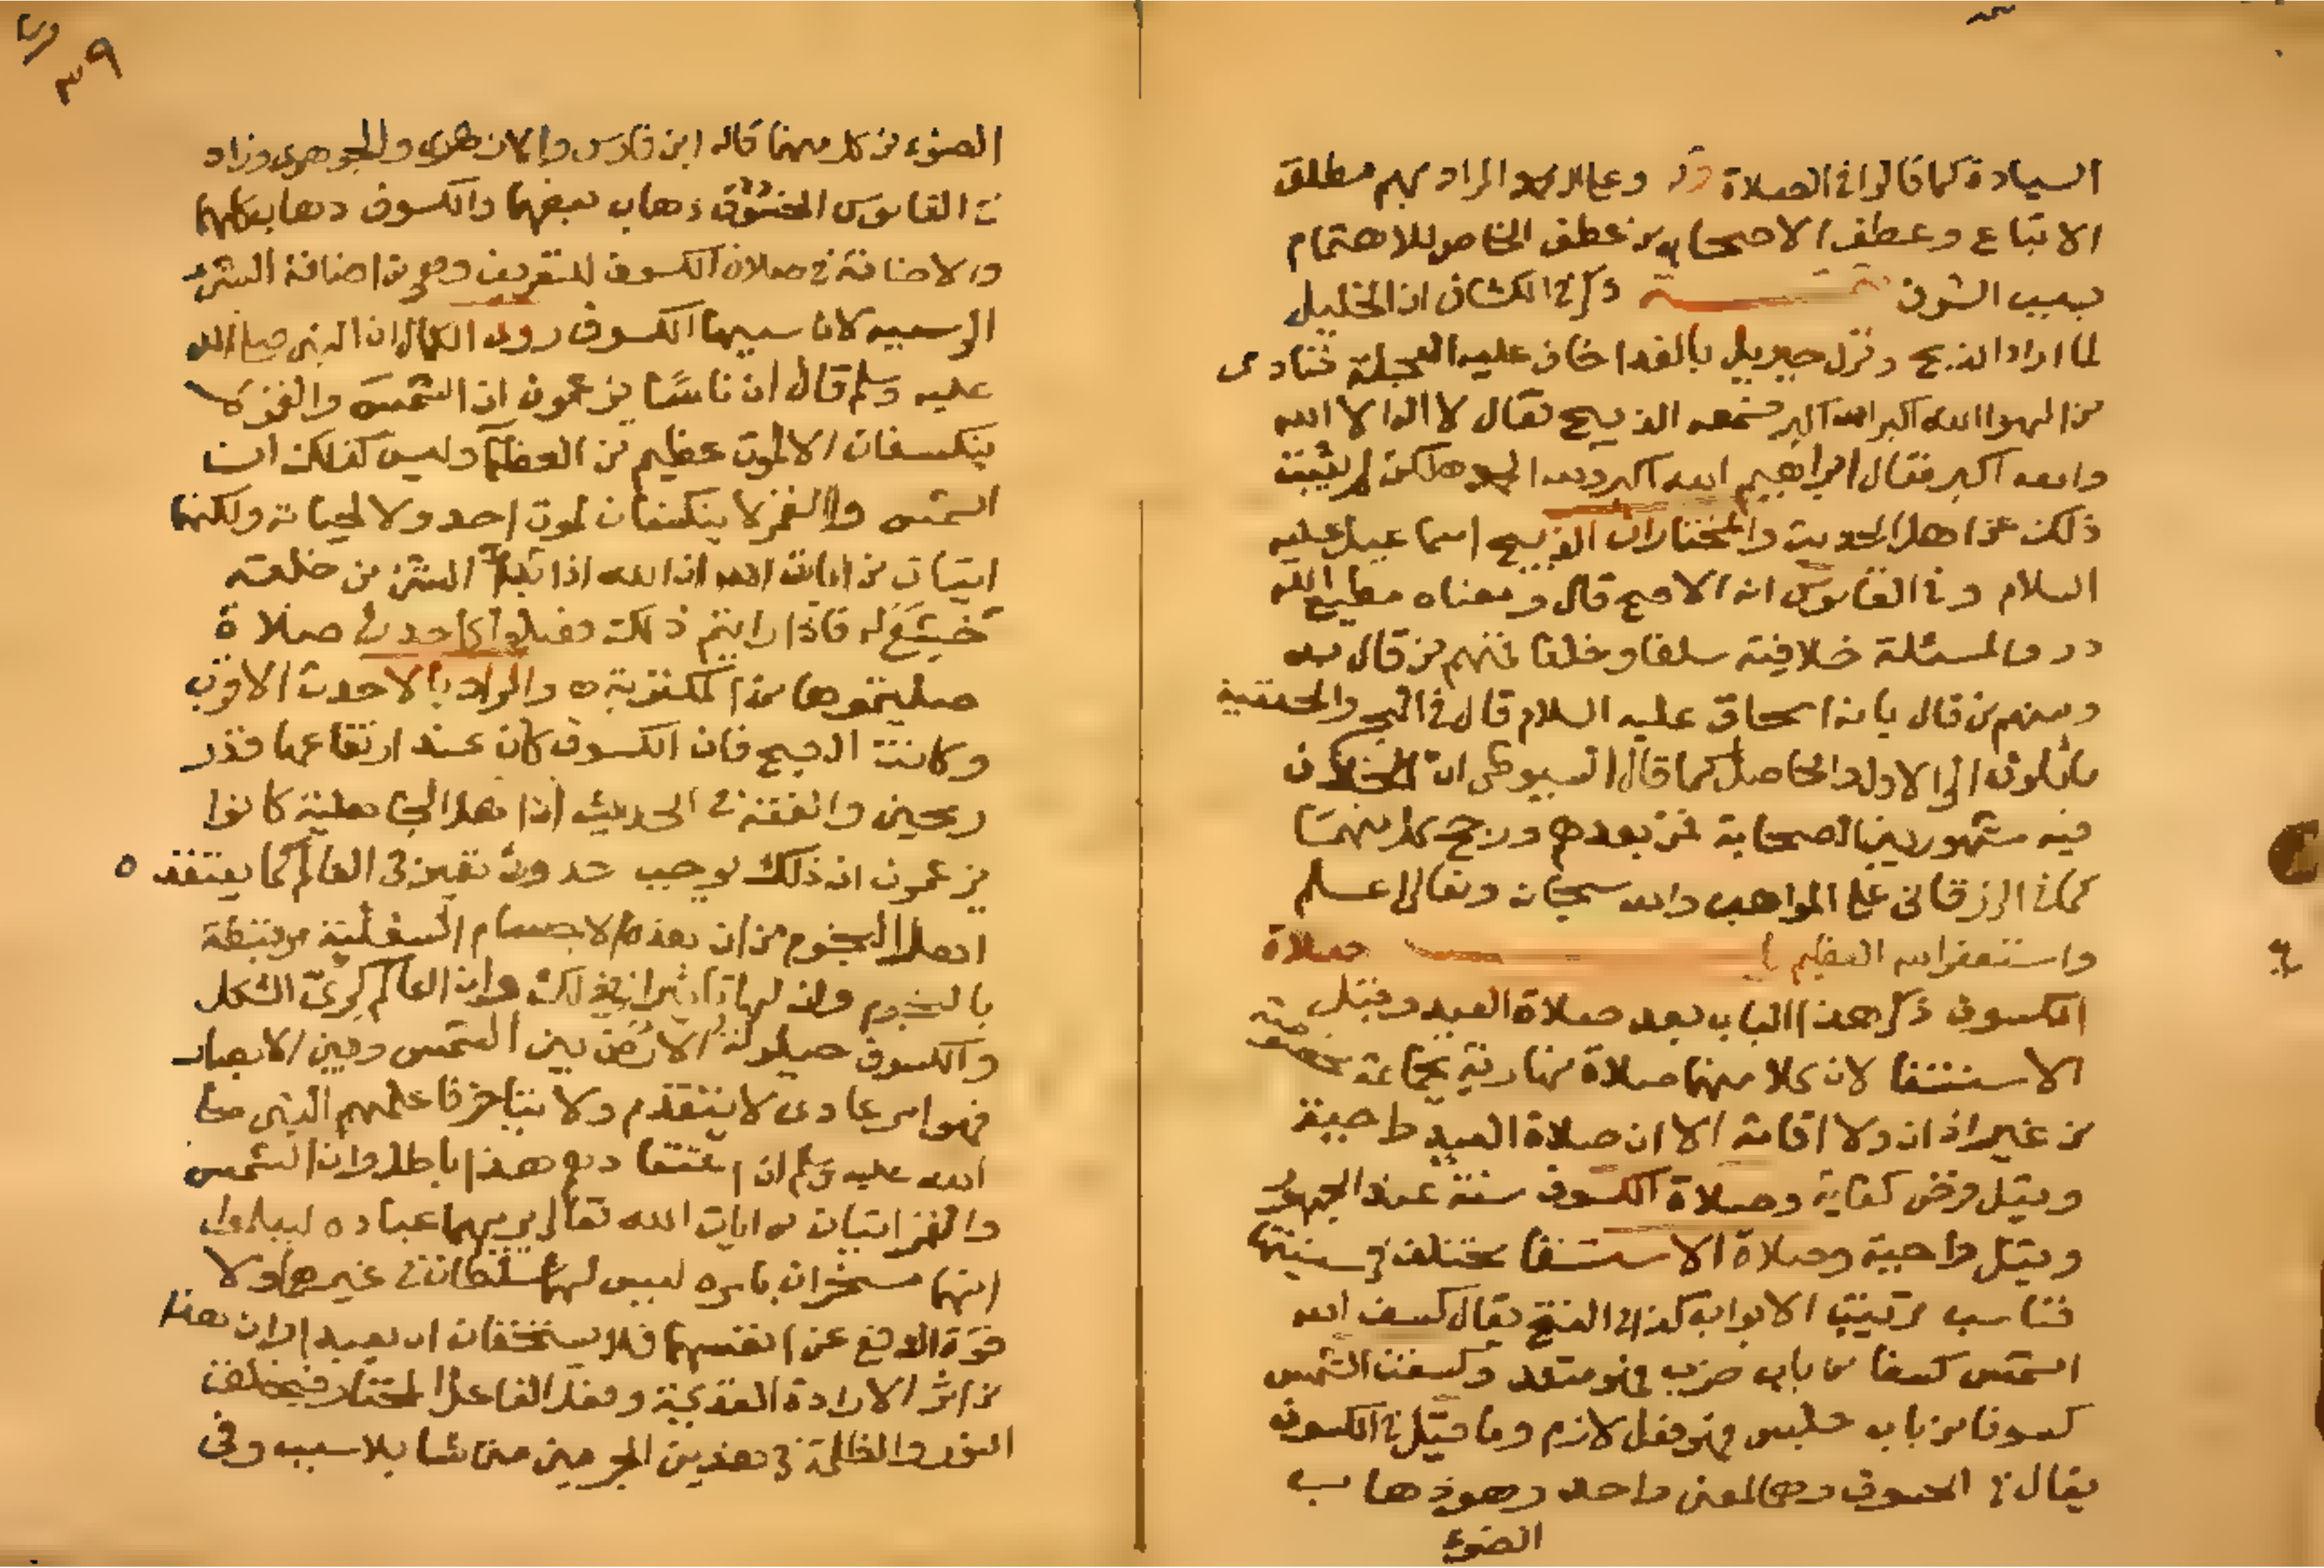 السيادة كما قالوا في الصلاة وعلى اله المراد بهم مطلق
الاتباع وعطف الاصحاب من عطف الخاص للاهتمام
بسبب الشرف ذكر في الكشاف ان الخليل
لما اراد الذبح ونزل جبريل بالفدا خاف عليه العجلة فنادى
من الهوا الله اكبر الله اكبر فسمعه الذبيح فقال لا اله الا الله
والله اكبر فقال ابراهيم الله اكبر ولله الحمد هكذا لم يثبت
ذلك عن اهل الحديث والمختار ان الذبيح اسماعيل عليه
السلام وفي القاموس انه الاصح قال ومعناه مطيع الله
در والمسئلة خلافية سلفا وخلفا فمنهم من قال به
ومنهم من قال بانه اسحاق عليه السلام قال في البحر والحنفية
مائلون الى الاول والحاصل كما قال السيوطي ان الخلاف
فيه مشهور بين الصحابة فمن بعدهم ورجح كل منهما
كما في الزرقاني على المواهب والله سبحانه وتعالى اعلم
واستغفر الله العظيم صلاة
الكسوف ذكر هذا الباب بعد صلاة العيد وقبل
الاستسقا لان كلا منهما صلاة نهارية بجماعة مخصوصة
من غير اذان ولا اقامة الا ان صلاة العيد واجبة
وقيل فرض كفاية وصلاة الكسوف سنة عند الجمهور
وقيل واجبة وصلاة الاستسقا مختلف في سنيتها
فتناسب ترتيب الابواب كذا في الفتح يقال كسف الله
الشمس كسفا من باب ضرب فهو متعد وكسفت الشمس
كسوفا من باب جلس فهو فعل لازم وما قيل في الكسوف
يقال في الخسوف وهما لمعنى واحد وهو ذهاب
الضوء
٣٩
الضوء من كل منهما قاله ابن فارس والازهري والجوهري وزاد
في القاموس الخسوف ذهاب بعضهما والكسوف ذهاب كلهما
والاضافة في صلاة الكسوف للتعريف وهو من اضافة الشئ
الى سببه لان سببها الكسوف روى الكمال ان النبي صلى الله
عليه وسلم قال ان ناسا يزعمون ان الشمس والقمر لا
ينكسفان الا لموت عظيم من العظما وليس كذلك ان
الشمس والقمر لا ينكسفان لموت احد ولا لحياته ولكنهما
ايتان من ايات الله ان الله اذا تجلى الشئ من خلقه
خشع له فاذا رايتم ذلك فصلوا كاحدث صلاة
صليتموها من المكتوبة ه والمراد بالاحدث الاقرب
وكانت الصبح فان الكسوف كان عند ارتفاعها قدر
رمحين والفقه في الحديث ان اهل الجاهلية كانوا
يزعمون ان ذلك يوجب حدوث تغير في العالم كما يعتقد ه
اهل النجوم من ان هذه الاجسام السفلية مرتبطة
بالنجوم وان لها تاثيرا في ذلك وان العالم كرى الشكل
والكسوف حيلولة الارض بين الشمس وبين الابصار
فهو امر عادى لا يتقدم ولا يتاخر فاعلمهم النبي صلى
الله عليه وسلم ان اعتقادهم هذا باطل وان الشمس
والقمر ايتان من ايات الله تعالى يريهما عباده ليعلموا
انهما مسخران بامره ليس لهما سلطان في غيرهما ولا
قوة الدفع عن انفسهما فلا يستحقان ان يعبدا وان هذا
من اثر الارادة القديمة وفعل الفاعل المختار فيخلق
النور والظلمة في هذين الجرمين متى شا بلا سبب وفي